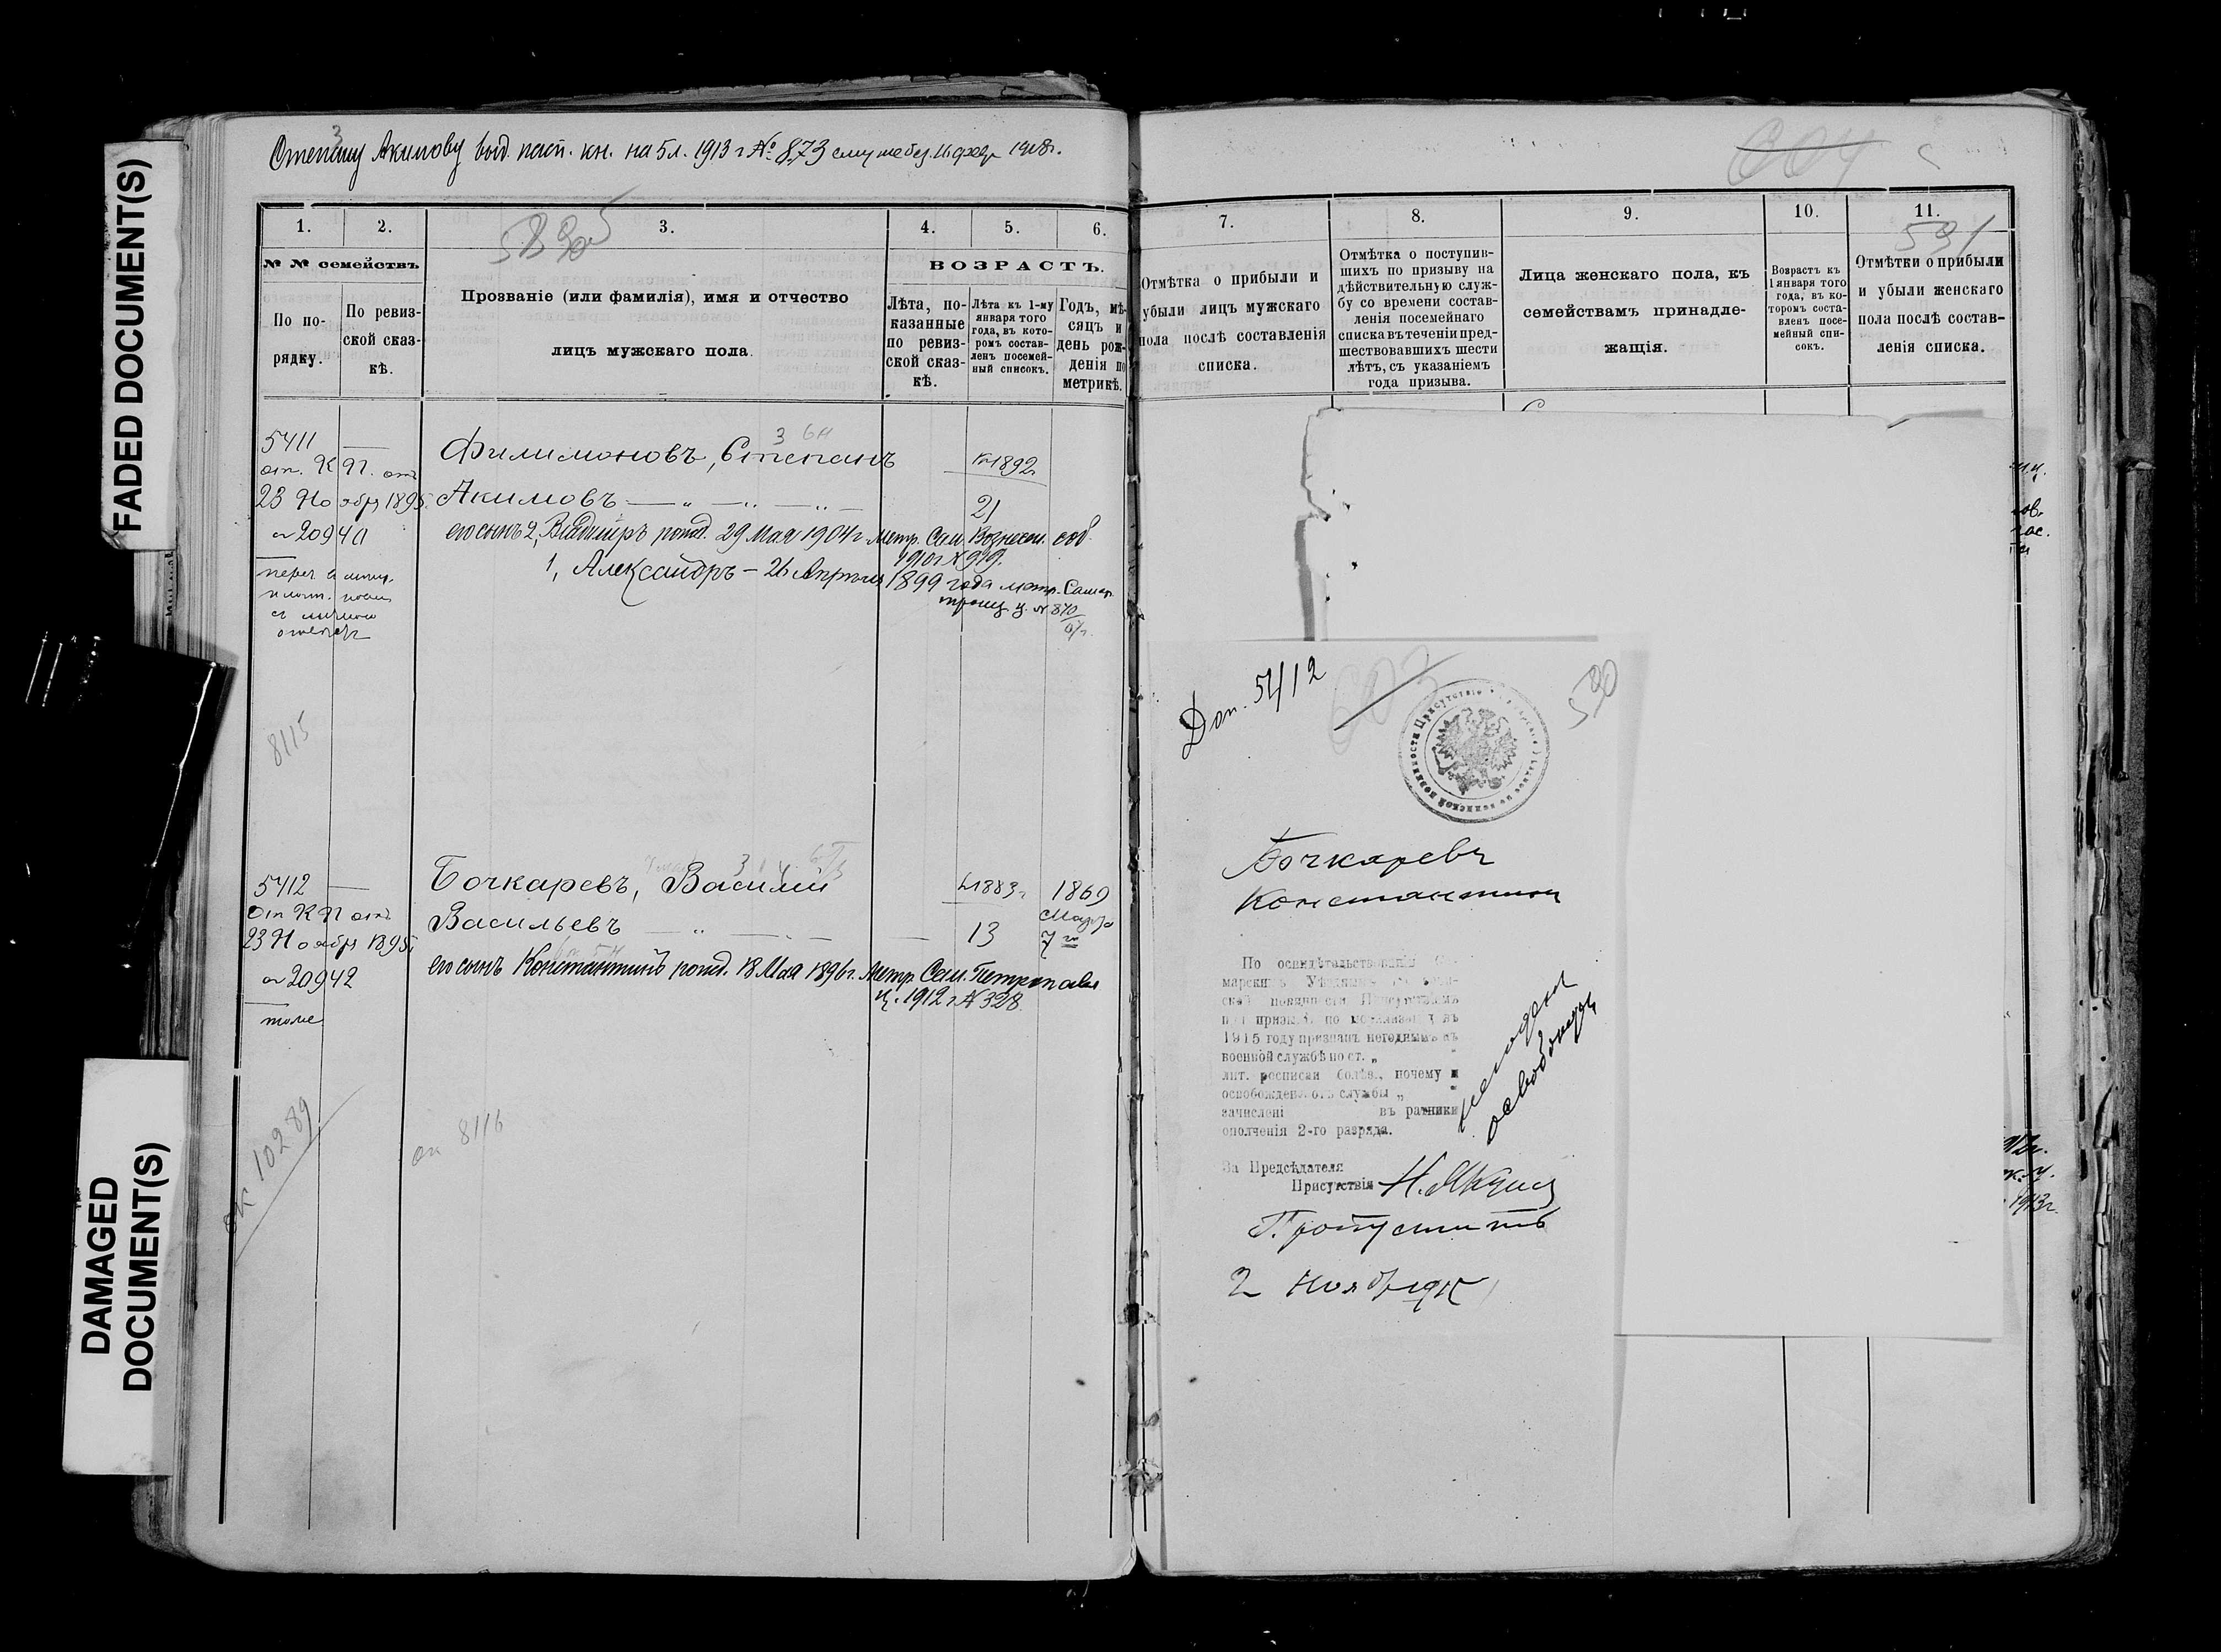 FADED DOCUMENT(S)
DAMAGED
DOCUMENT(S)
Степану Акимову выд. пасп. кн. на 5 л. 1913 г № 873
1.
2.
3.
4.
5.
6.
№ № семействъ
По по-
рядку.
По ревиз-
ской сказ-
кѣ.
Прозваніе (или фамилія), имя и отчество
лицъ мужскаго пола.
ВОЗРАСТЪ.
Лѣта, по-
казанные
по ревиз-
ской сказ-
кѣ.
Лѣта къ 1-му
января того
года, въ кото-
ромъ состав-
ленъ посемей-
ный списокъ.
Годъ, мѣ-
сяцъ и
день рож-
денія по
метрикѣ.
5411
от. К П. отъ
23 Ноября 1895.
Филимоновъ, Степанъ
Акимовъ
1892
21
его сынъ 2, Владиміръ рожд. 29 Мая 1904 г метр. Сам. Вознесен. соб.
1, Александръ - 26 Апрѣля 1899 года метр. Самар.
троиц. ц. № 870
8115
5412
от К П отъ
23 Ноября 1895
20942
тоже
Бочкаревъ, Василій
Васильевъ
1883
13
1869
Марта
7 го
его сынъ Константинъ рожд. 18 Мая 1896 г. метр. Сам. Петропавл
ц. 1912 г № 328.
10289
8116
604
7.
8.
9.
10.
11.
531
Отмѣтка о прибыли и
убыли лицъ мужскаго
пола послѣ составленія
списка.
Отмѣтка о поступив-
шихъ по призыву на
дѣйствительную служ-
бу со времени состав-
ленія посемейнаго
списка въ теченіи пред-
шествовавшихъ шести
лѣтъ, съ указаніемъ
года призыва.
Лица женскаго пола, къ
семействамъ принадле-
жащія.
Возрастъ къ
1 января того
года, въ ко-
торомъ соста-
вленъ посе-
мейный спи-
сокъ.
Отмѣтки о прибыли
и убыли женскаго
пола послѣ состав-
ленія списка.
Доп. 5412
603
530
Бочкаревъ
Константин
По освидѣтельствованіи Са-
марскимъ Уѣзднымъ по воин-
ской повинности Присутствіемъ
при призывѣ по мобилизаціи въ
1915 году признанъ негоднымъ къ
военной службѣ по ст. „
лит. росписаи болѣз., почему и
освобожденъ отъ службы „
зачислені въ ратники
ополченія 2-го разряда.
негоденъ
освобожденъ
За Предсѣдателя
Присутствія
Пропустить
2 Ноября
1913 г.